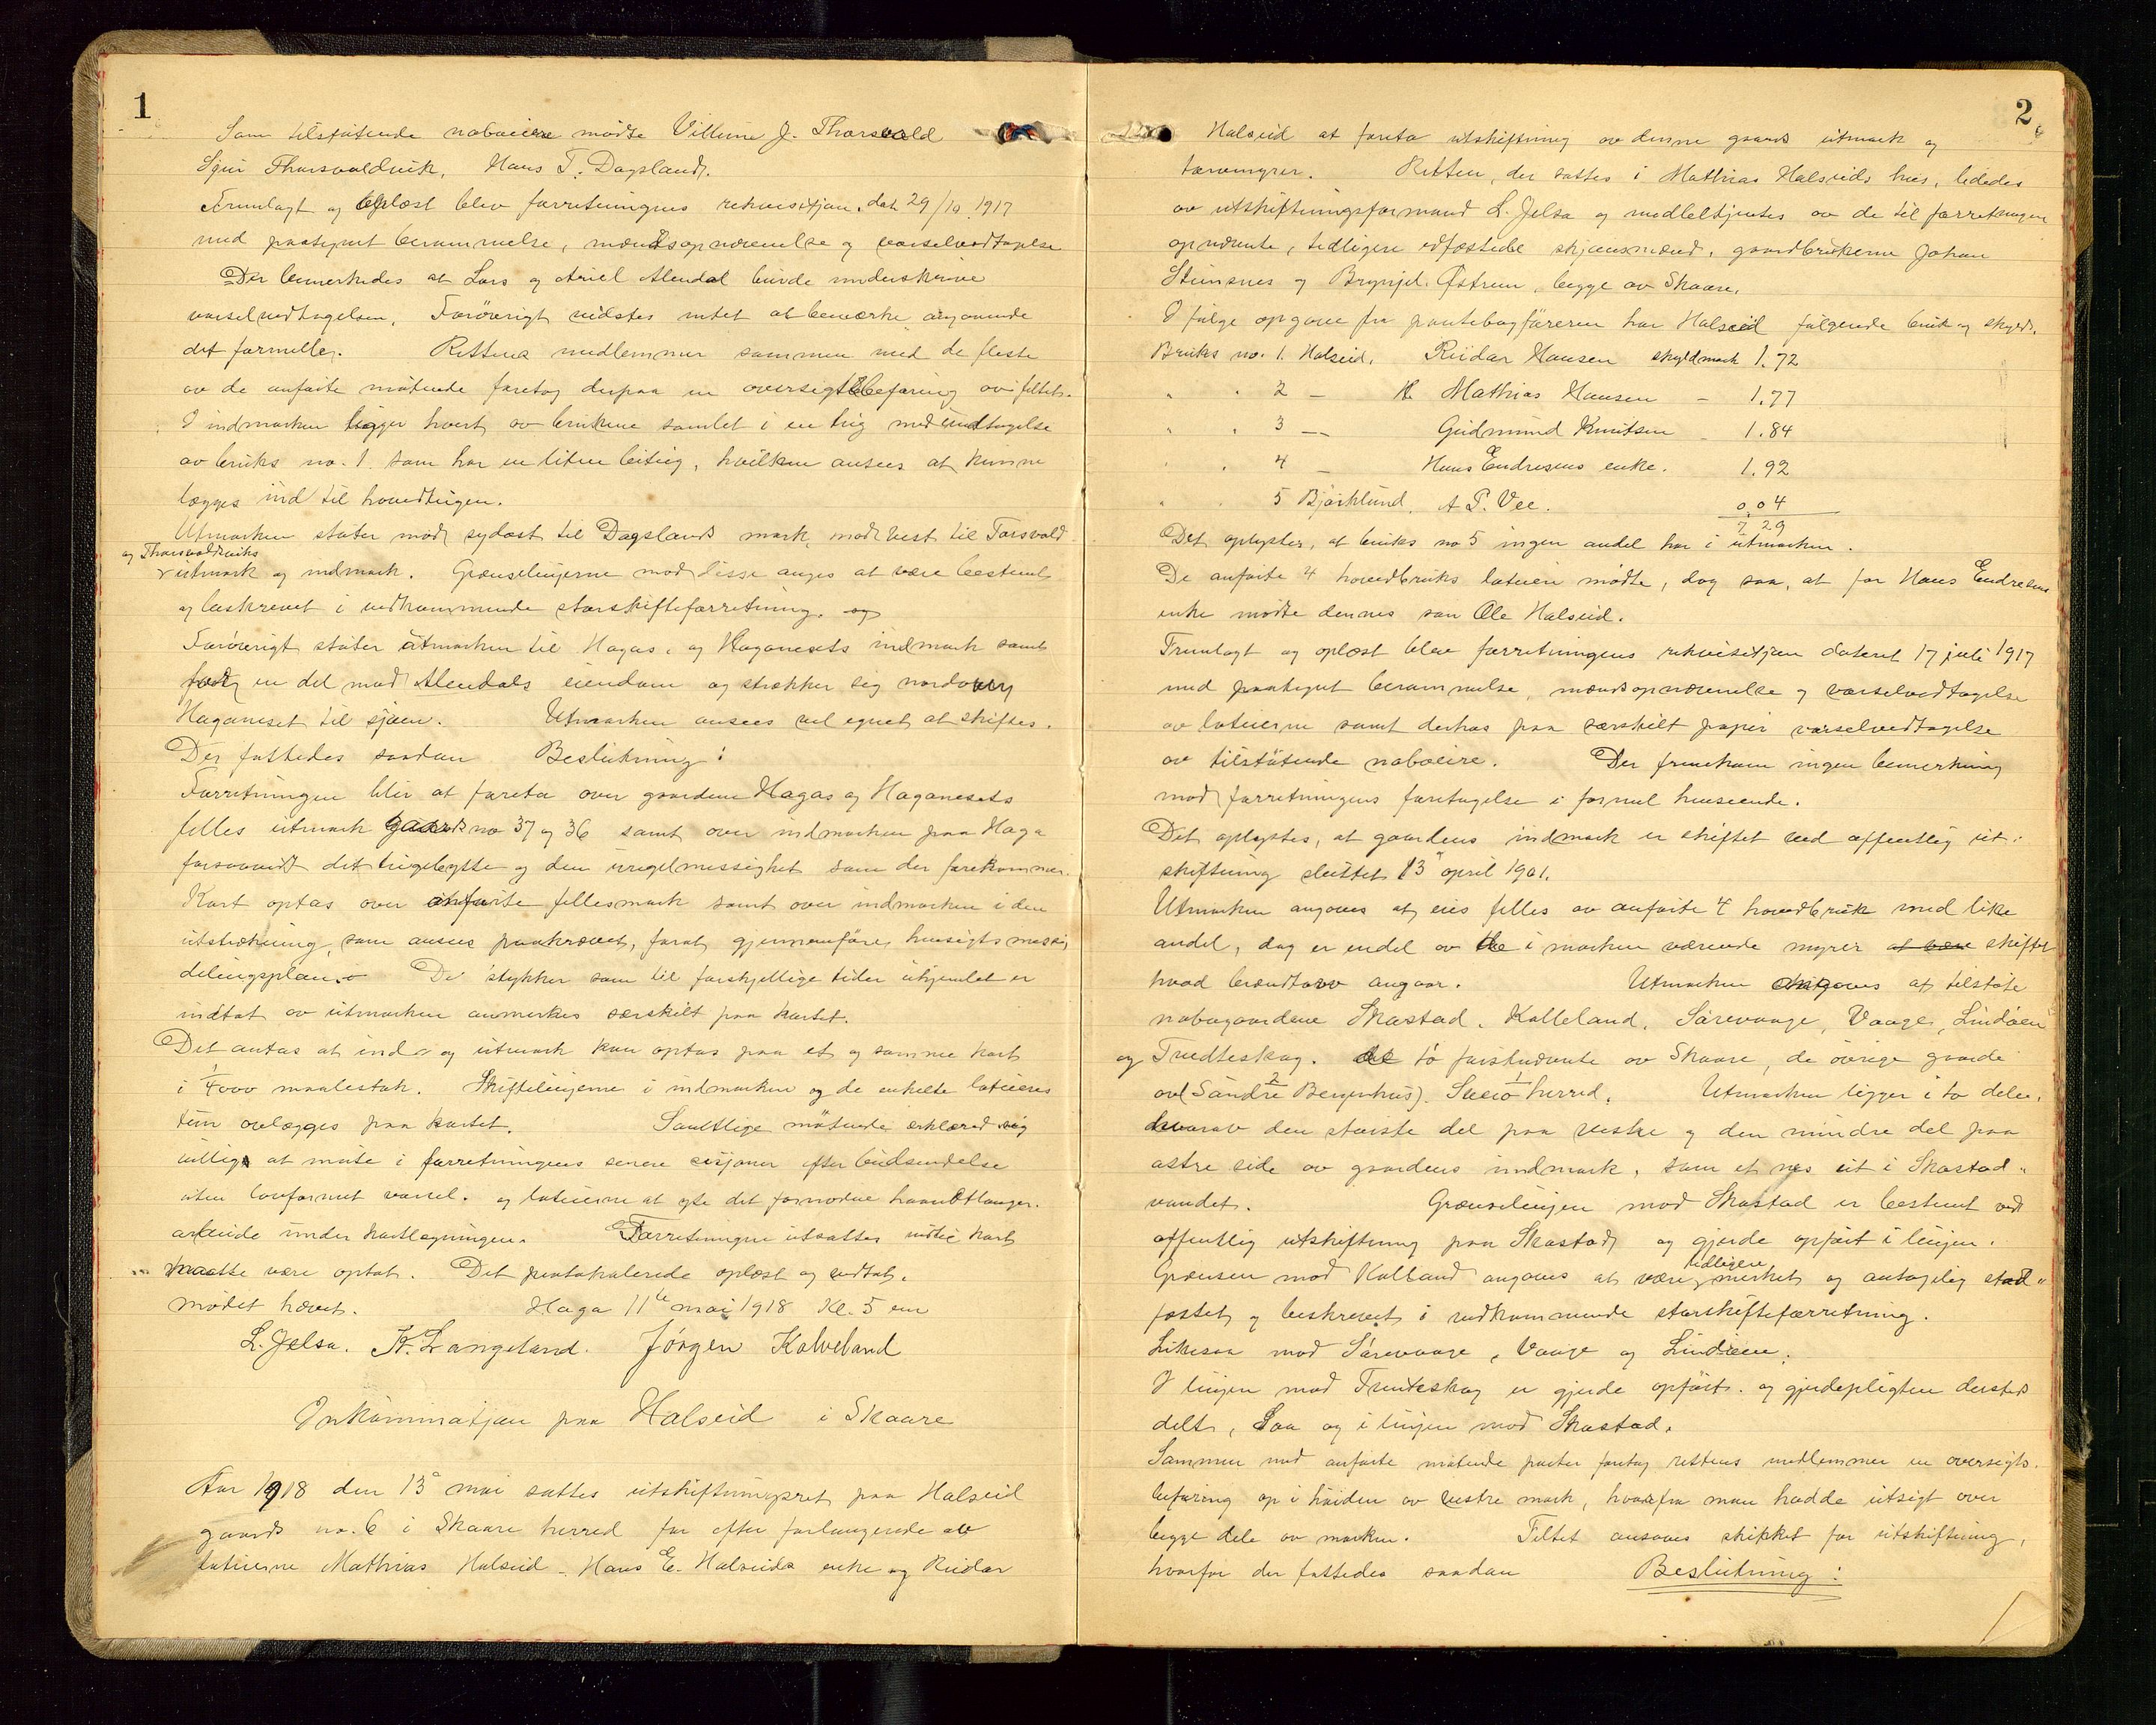 1
Som tilstøtende naboeiere mødte Villum J. Thorsvold
Sjur Thorsvoldvik, Hans T. Dagsland.
Fremlagt og oplæst blev forretningens rekvisisjon dat 29/10 1917
med paategnet berammelse, mændsopnævnelse og varselvedtagelse
Der bemerkedes at Lars og Ariel Alendal burde underskrive
varselvedtagelsen. Forøvrigt vidstes intet at bemerke angaaende
det formelle. Rettens medlemmer sammen med de fleste
av de anførte møtende foretog derpaa en oversigtsbefaring av feltet.
I indmarken ligger hvert av brukene samlet i en teig med undtagelse
av bruks no. 1 som har en liten biteig, hvilken ansees at kunne
lægges ind til hovedteigen.
Utmarken støter mod sydøst til Dagslands mark, mod vest til Torsvold
og Thorsvoldviks
utmark og indmark. Grænselinjerne mod disse anges at være bestemt
og beskrevet i vedkommende storskifteforretning. og
Forøvrigt støter utmarken til Hagas og Haganesets indmark samt
for en del mod Alendals eiendom og strækker sig nordover
Haganeset til sjøen. Utmarken ansees vel egnet at skiftes.
Der fattedes saadan Beslutning:
Forretningen blir at foreta over gaardene Hagas og Haganesets
felles utmark Gaards no 37 og 36 samt over indmarken paa Haga
forsaavidt det teigebytte og den uregelmessighet som der forekommer.
Kart optas over anførte fellesmark samt over indmarken i den
utstrekning, som ansees paakrævet, forat gjennemføre hensigtsmessig
delingsplan. De stykker som til forskjellige tider uhjemlet er
indtat av utmarken anmerkes særskilt paa kartet.
Det antas at ind- og utmark kan optas paa et og samme kart
i 1/4000 maalestok. Skiftelinjerne i indmarken og de enkelte loteieres
tun avlægges paa kartet. Samtlige møtende erklæred sig
villige at møte i forretningens senere sesjoner efter budsendelse
uten lovformet varsel. og loteierne at yte det fornødne haandtlanger-
arbeide under kartlegningen. Forretningen utsattes indtil kart
maatte være optat. Det protokolerede oplæst og vedtat.
mødet hævet. Haga 11te mai 1918 Kl. 5 em
L. Jelsa. K. Langeland. Jørgen Kalveland
Inkaminasjon paa Halseid i Skaare
Aar 1918 den 13de mai sattes utskiftningsret paa Halseid
gaards no. 6 i Skaare herred for efter forlangende av
loteierne Mathias Halseid, Hans E. Halseids enke og Reidar
2
Halseid at foreta utskiftning av denne gaards utmark og
torvmyrer. Retten, der sattes i Mathias Halseids hus, lededes
av utskiftningsformand L. Jelsa og meddeltjentes av de til forretningen
opnævnte, tidligere edfæstede skjønsmænd, gaardbrukerne Johan
Steinsnes og Brynjel. Østrem, begge av Skaare.
I følge opgave fra pantebogføreren har Halseid følgende bruk og skyld.
Bruks no. 1. Halseid. Reidar Hansen skyldmark 1.72
" " 2 — H. Mathias Hansen — 1.77
" " 3 — Gudmund Knutsen — 1.84
" " 4 — Hans Endresens enke. 1.92
" " 5 Bjørklund. A P. Vee. 0.04
7.29
Det oplystes, at bruks no 5 ingen andel har i utmarken.
De anførte 4 hovedbruks loteiere mødte, dog saa, at for Hans Endresens
enke mødte dennes søn Ole Halseid.
Fremlagt og oplæst blev forretningens rekvisisjon dateret 17 juli 1917
med paategnet berammelse, mændsopnævnelse og varselvedtagelse
av loteierne samt derhos paa særskilt papir varselvedtagelse
av tilstøtende naboeiere. Der fremkom ingen bemerkning
mod forretningens foretagelse i formel henseende.
Det oplystes, at gaardens indmark er skiftet ved offentlig ut-
skiftning sluttet 13de april 1901.
Utmarken angaves at eies felles av anførte 4 hovedbruk med like
andel, dog er endel av de i marken værende myrer at være skiftet
hvad brændtorv angaar. Utmarken angaves at tilstøte
nabogaardene Skastad, Kalleland, Sørevaage, Vaage, Lindøen
og Tvedteskog. de to førstnævnte av Skaare, de øvrige gaarde
av (Søndre 2 Bergenhus). Sveio 1 herred. Utmarken ligger i to dele,
hvorav den største del paa vestre og den mindre del paa
østre side av gaardens indmark, som et nes ut i Skastad-
vandet. Grænselinjen mod Skastad er bestemt ved
offentlig utskiftning paa Skastad og gjerde opført i linjen.
Grænsen mod Kalland angaves at være tidligere merket og antagelig stad-
fæstet og beskrevet i vedkommende storskifteforretning.
Likesaa mod Sørevaage, Vaage og Lindøen.
I linjen mod Tveiteskog er gjerde opført. og gjerdepligten dersteds
delt, Saa og i linjen mod Skastad.
Sammen med anførte møtende parter foretog rettens medlemmer en oversigts-
befaring op i høiden av vestre mark, hvorfra man hadde utsigt over
begge dele av marken. Feltet ansaaes skikket for utskiftning,
hvorfor der fattedes saadan Beslutning: